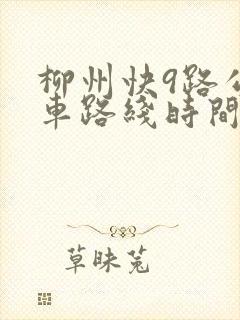 柳州快9路公
車路綫時間
草昧兔